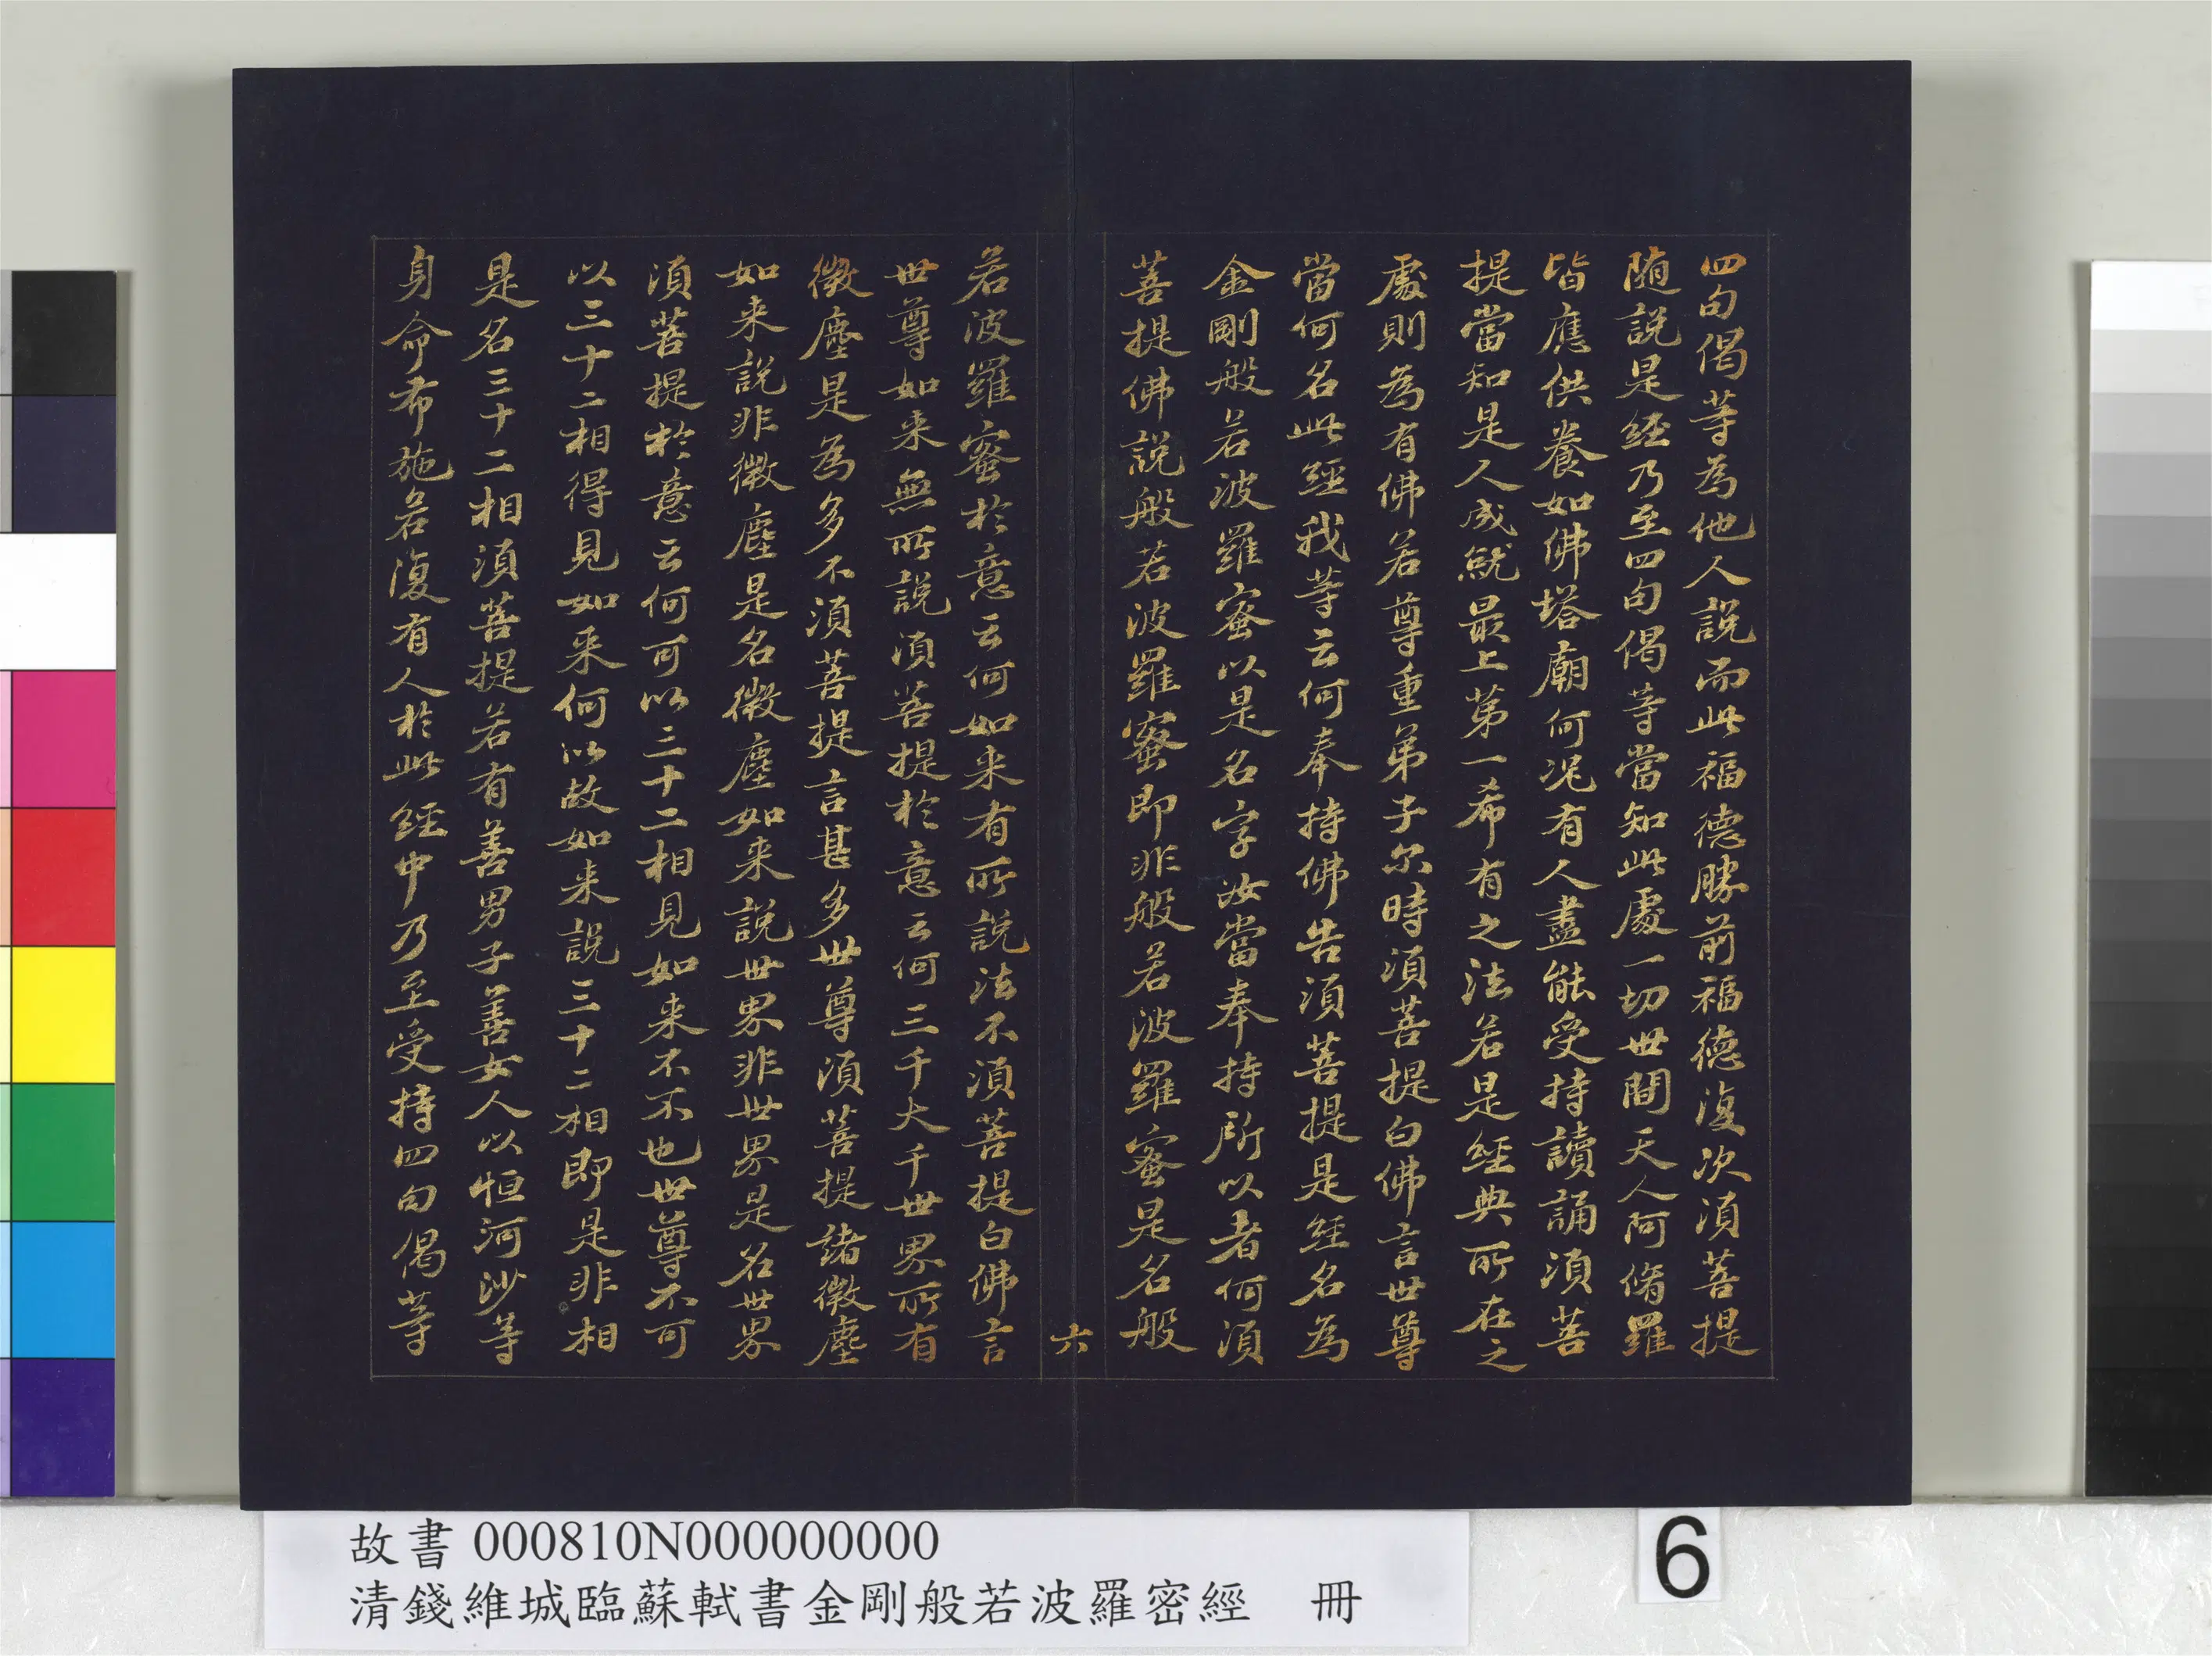 四句偈等為他人說而此福德勝前福德復次須菩提
随說是經乃至四句偈等當知此處一切世間天人阿脩羅
皆應供養如佛塔廟何况有人盡能受持讀誦須菩
提當知是人成就最上第一希有之法若是經典所在之
處則為有佛若尊重弟子尔時須菩提白佛言世尊
當何名此經我等云何奉持佛告須菩提是經名為
金剛般若波羅蜜以是名字汝當奉持所以者何須
菩提佛說般若波羅蜜即非般若波羅蜜是名般
六
若波羅蜜於意云何如来有所說法不須菩提白佛言
世尊如来無所說須菩提於意云何三千大千世界所有
微塵是為多不須菩提言甚多世尊須菩提諸微塵
如来說非微塵是名微塵如来說世界非世界是名世界
須菩提於意云何可以三十二相見如来不不也世尊不可
以三十二相得見如来何以故如来說三十二相即是非相
是名三十二相須菩提若有善男子善女人以恒河沙等
身命布施若復有人於此經中乃至受持四句偈等
故書 000810N000000000
清錢維城臨蘇軾書金剛般若波羅密經 冊
6